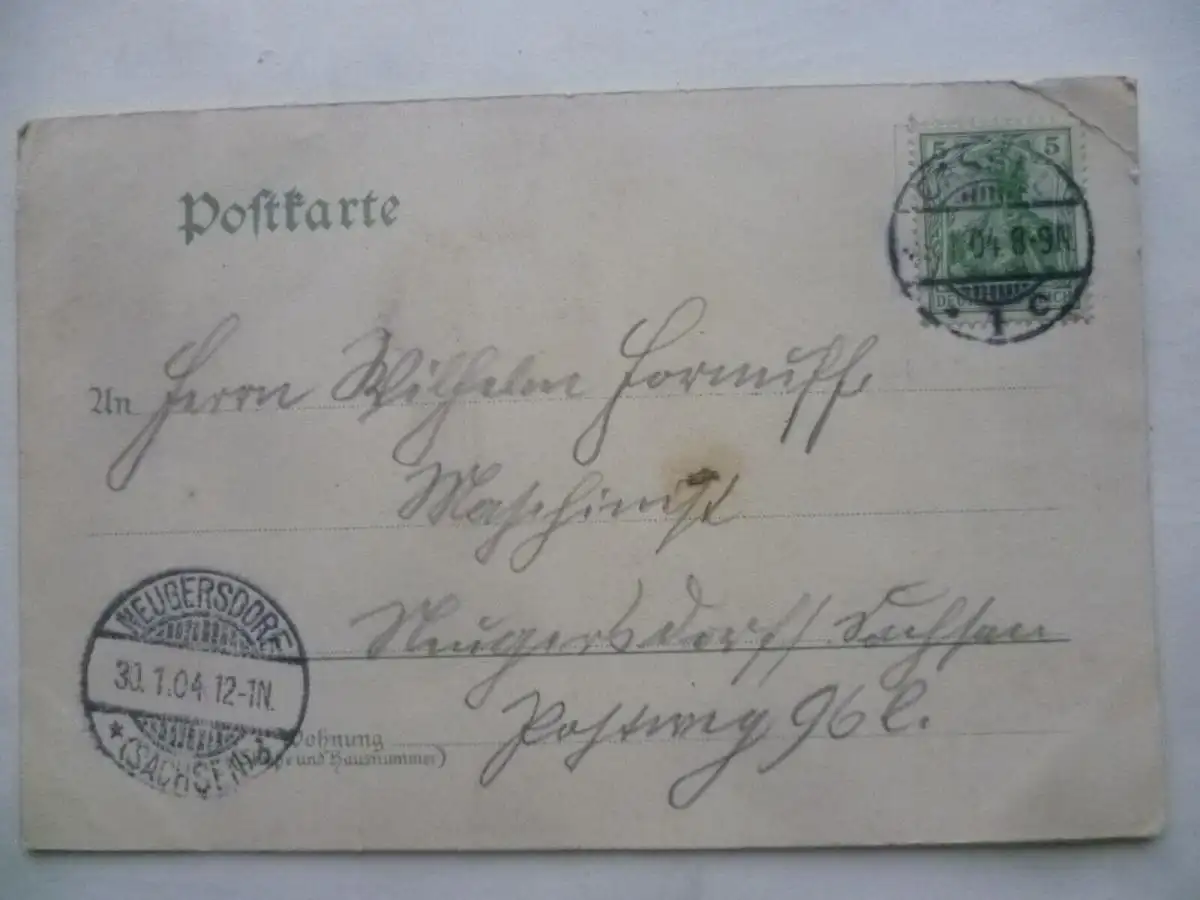 Postkarte
5 5
CASSEL
1 04 8-9N.
* 1 C
DEUTSCHES REICH
An Herrn Wilhelm
Maschinist
Neugersdorf / Sachsen
Postweg 96
Wohnung
(Straße und Hausnummer)
NEUGERSDORF
30.1.04.12-1N.
* (SACHSEN)